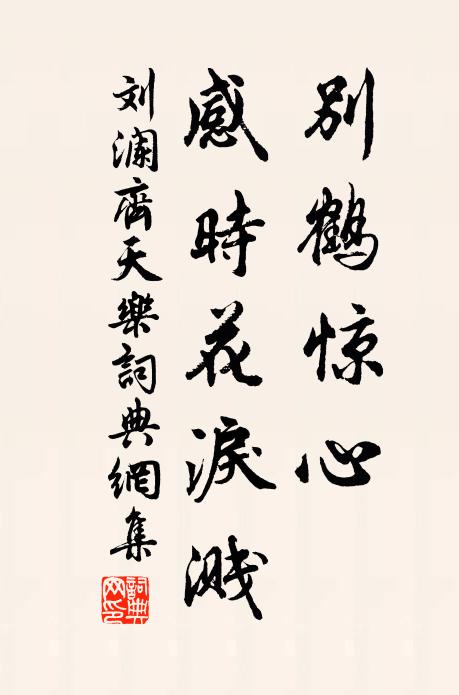 别鹤惊心
感時花淚溅
刘澜齊天樂詞典網集
詞典网印